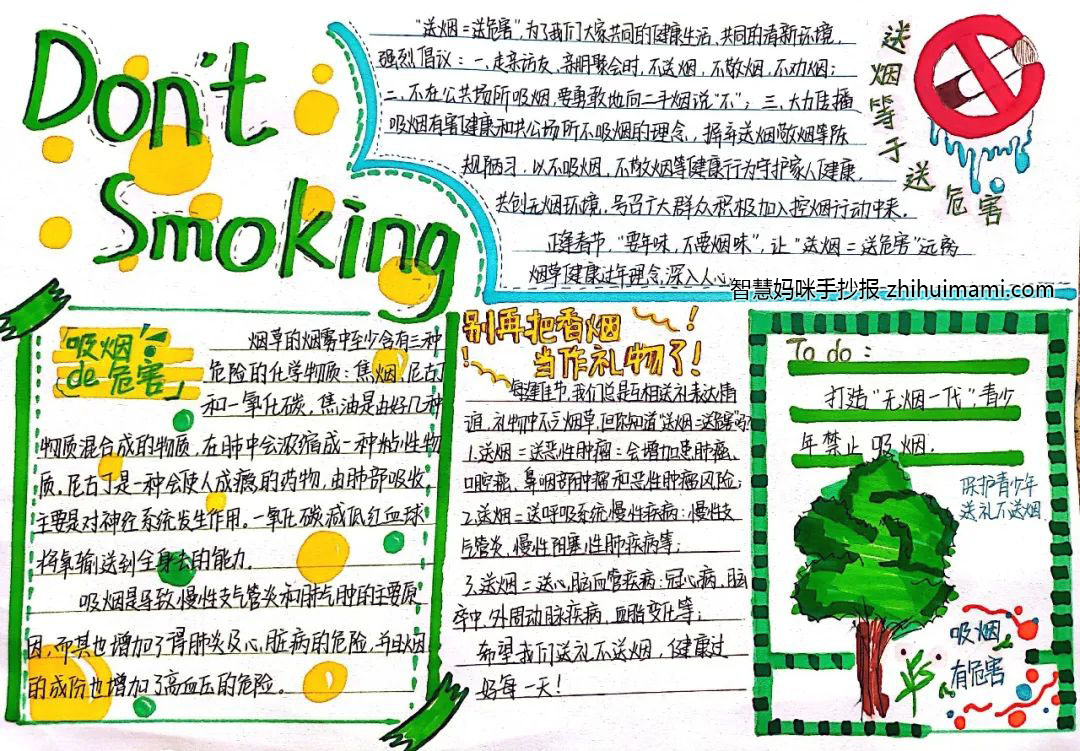 Don't
Smoking
"送烟=送危害",为了我们大家共同的健康生活、共同的清新环境,
强烈倡议:一、走亲访友、亲朋聚会时,不送烟,不敬烟,不劝烟;
二、不在公共场所吸烟,要勇敢地向二手烟说"不";三、大力传播
吸烟有害健康和共公场所不吸烟的理念,摒弃送烟敬烟等陈
规陋习,以不吸烟,不敬烟等健康行为守护家人健康,
共创无烟环境,号召广大群众积极加入控烟行动中来。
正逢春节,"要年味,不要烟味",让"送烟=送危害"远离
烟草健康过年理念深入人心
送烟等于送危害
智慧妈咪手抄报 zhihuimami.com
「吸烟
de危害」
烟草的烟雾中至少含有三种
危险的化学物质:焦烟,尼古丁
和一氧化碳,焦油是由好几种
物质混合成的物质,在肺中会浓缩成一种粘性物
质。尼古丁是一种会使人成瘾的药物,由肺部吸收,
主要是对神经系统发生作用。一氧化碳减低红血球
将氧输送到全身去的能力。
吸烟是导致慢性支气管炎和肺气肿的主要原
因,而其也增加了得肺炎及心脏病的危险,并且烟
的成份也增加了高血压的危险。
别再把香烟
当作礼物了!
每逢佳节,我们总是互相送礼表达情
谊,礼物中不乏烟草,但你知道"送烟=送危害"吗
1.送烟=送恶性肿瘤:会增加患肺癌、
口腔癌、鼻咽部肿瘤和恶性肿瘤风险;
2.送烟=送呼吸系统慢性疾病:慢性支
气管炎、慢性阻塞性肺疾病等;
3.送烟=送心脑血管疾病:冠心病、脑
卒中、外周动脉疾病、血脂变化等;
希望我们送礼不送烟,健康过
好每一天!
To do:
打造"无烟一代"青少
年禁止吸烟.
保护青少年
送礼不送烟
吸烟
有危害